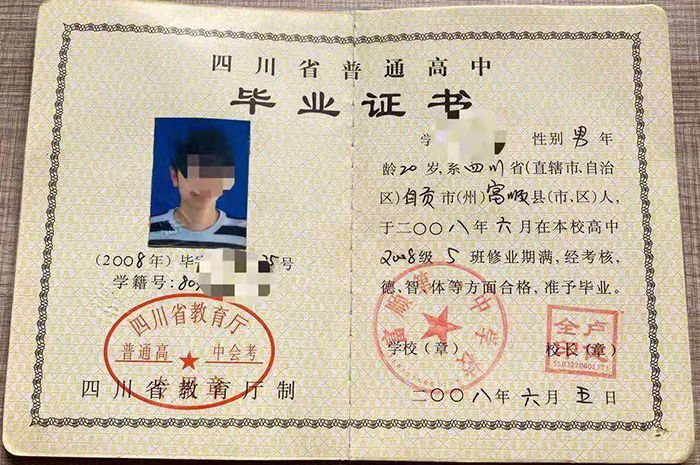 四川省普通高中
毕业证书
(2008年)毕
号
学籍号:
四川省教育厅
普通高 中会考
专用章
四川省教育厅制
学
性别男年
龄20岁,系四川省(直辖市、自治
区)自贡市(州)富顺县(市、区)人,
于二〇〇八年六月在本校高中
2008级5班修业期满,经考核,
德、智、体等方面合格,准予毕业。
富顺第 中学校
学校(章) 校长(章)
二〇〇八年六月五日